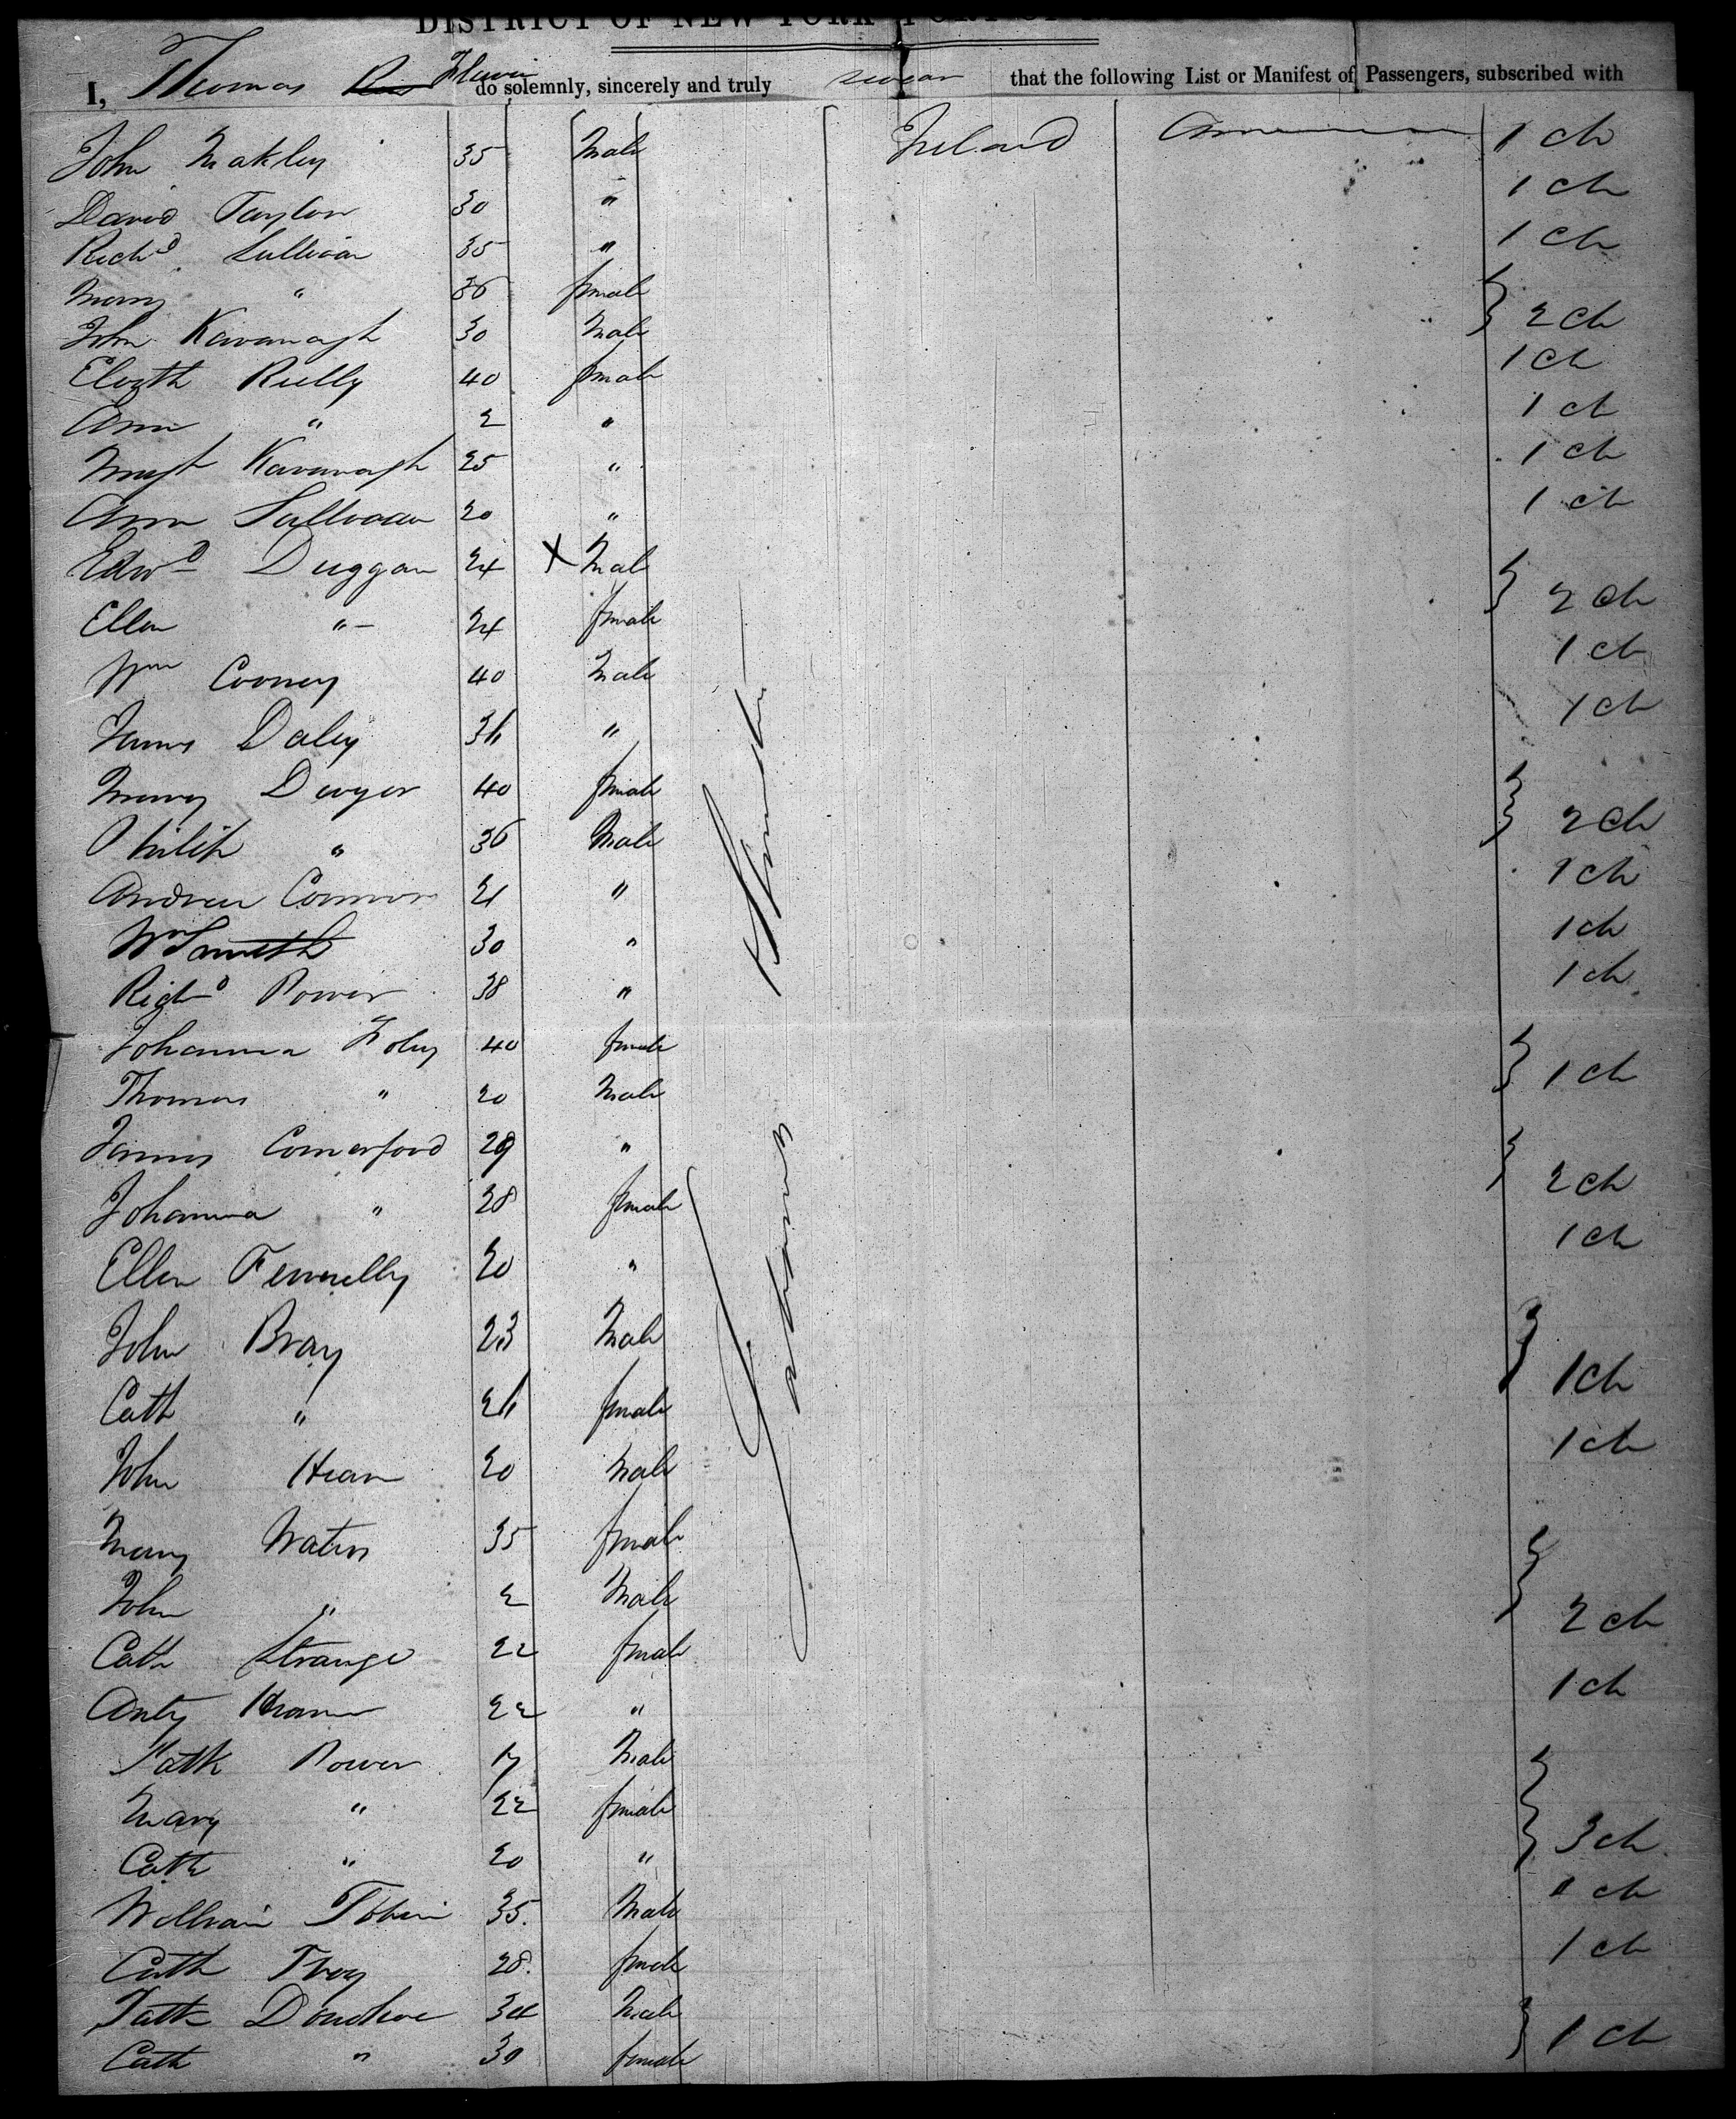 DISTRICT OF NEW YORK PORT OF
I, Thomas Flavin do solemnly, sincerely and truly swear that the following List or Manifest of Passengers, subscribed with
John Makley 35 Male Ireland America 1 ch
David Taylor 30 " 1 ch
Richd Sullivan 35 " 1 ch
Mary " 36 female
John Kavanagh 30 Male 2 ch
Elizth Reilly 40 female 1 ch
Ann " 2 " 1 ch
Margt Kavanagh 25 " 1 ch
Ann Sullivan 20 " 1 ch
Edwd Duggan 24 X Male
Ellen " 24 female 2 ch
Wm Cooney 40 Male 1 ch
James Daley 36 " 1 ch
Mary Dwyer 40 female
Philip " 36 Male 2 ch
Andrew Connor 21 " 1 ch
Wm Smith 30 " 1 ch
Richd Power 38 " 1 ch
Johanna Foley 40 female
Thomas " 20 Male 1 ch
James Comerford 29 "
Johanna " 28 female 2 ch
Ellen Fennelly 20 " 1 ch
John Bray 23 Male
Cath " 26 female 1 ch
John Hearn 20 Male 1 ch
Mary Waters 35 female
John " 2 Male 2 ch
Cath Strange 22 female
Anty 22 " 1 ch
Patk Power 17 Male
Mary " 22 female
Cath " 20 " 3 ch
William Tobin 35. Male 1 ch
Cath 28. female 1 ch
Patk Donohoe 34 Male
Cath " 30 female 1 ch